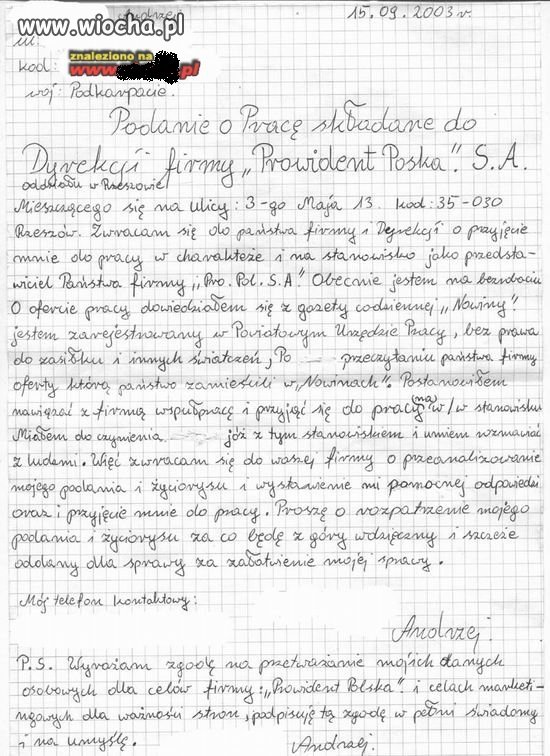 www.wiocha.pl
Andrzej
15.09.2003 r.
ul.
znaleziono na
kod:
www. .pl
woj: Podkarpacie.
Podanie o Pracę składane do
Dyrekcji firmy „Prowident Poska". S.A.
oddziału w Rzeszowie
Mieszczącego się na Ulicy: 3-go Maja 13. kod: 35-030
Rzeszów. Zwracam się do państwa firmy i Dyrekcji o przyjęcie
mnie do pracy w charakteże i na stanowisko jako przedsta-
wiciel Państwa firmy „Pro. Pol. S.A." Obecnie jestem na bezrobociu
O ofercie pracy dowiedziałem się z gazety codziennej „Nowiny".
jestem zarejestrowany w Powiatowym Urzędzie Pracy, bez prawa
do zasiłku i innych świateczeń, Po przeczytaniu państwa firmy
oferty którą państwo zamieścili w „Nowinach". Postanowiłem
nawiązać z firmą wspułpracę i przyjąć się do pracy (na) w/w stanowisku
Miałem do czynienia jóż z tym stanowiskiem i umiem rozmawiać
z ludzmi. Więc zwracam się do waszej firmy o przeanalizowanie
mojego podania i życiorysu i wystawienie mi pomocnej odpowiedzi
oraz i przyjęcie mnie do pracy. Proszę o rozpatrzenie mojego
podania i życiorysu za co będę z góry wdzięczny i szczeże
oddany dla sprawy za załatwienie mojej sprawy.
Mój telefon kontaktowy:
Andrzej
P.S. Wyrażam zgodę na przetważanie mojich danych
osobowych dla celów firmy: „Prowident Polska". i celach marketi-
ngowych dla ważności stron, podpisuję tą zgodę w pełni świadomy
i na umyśle.
Andrzej